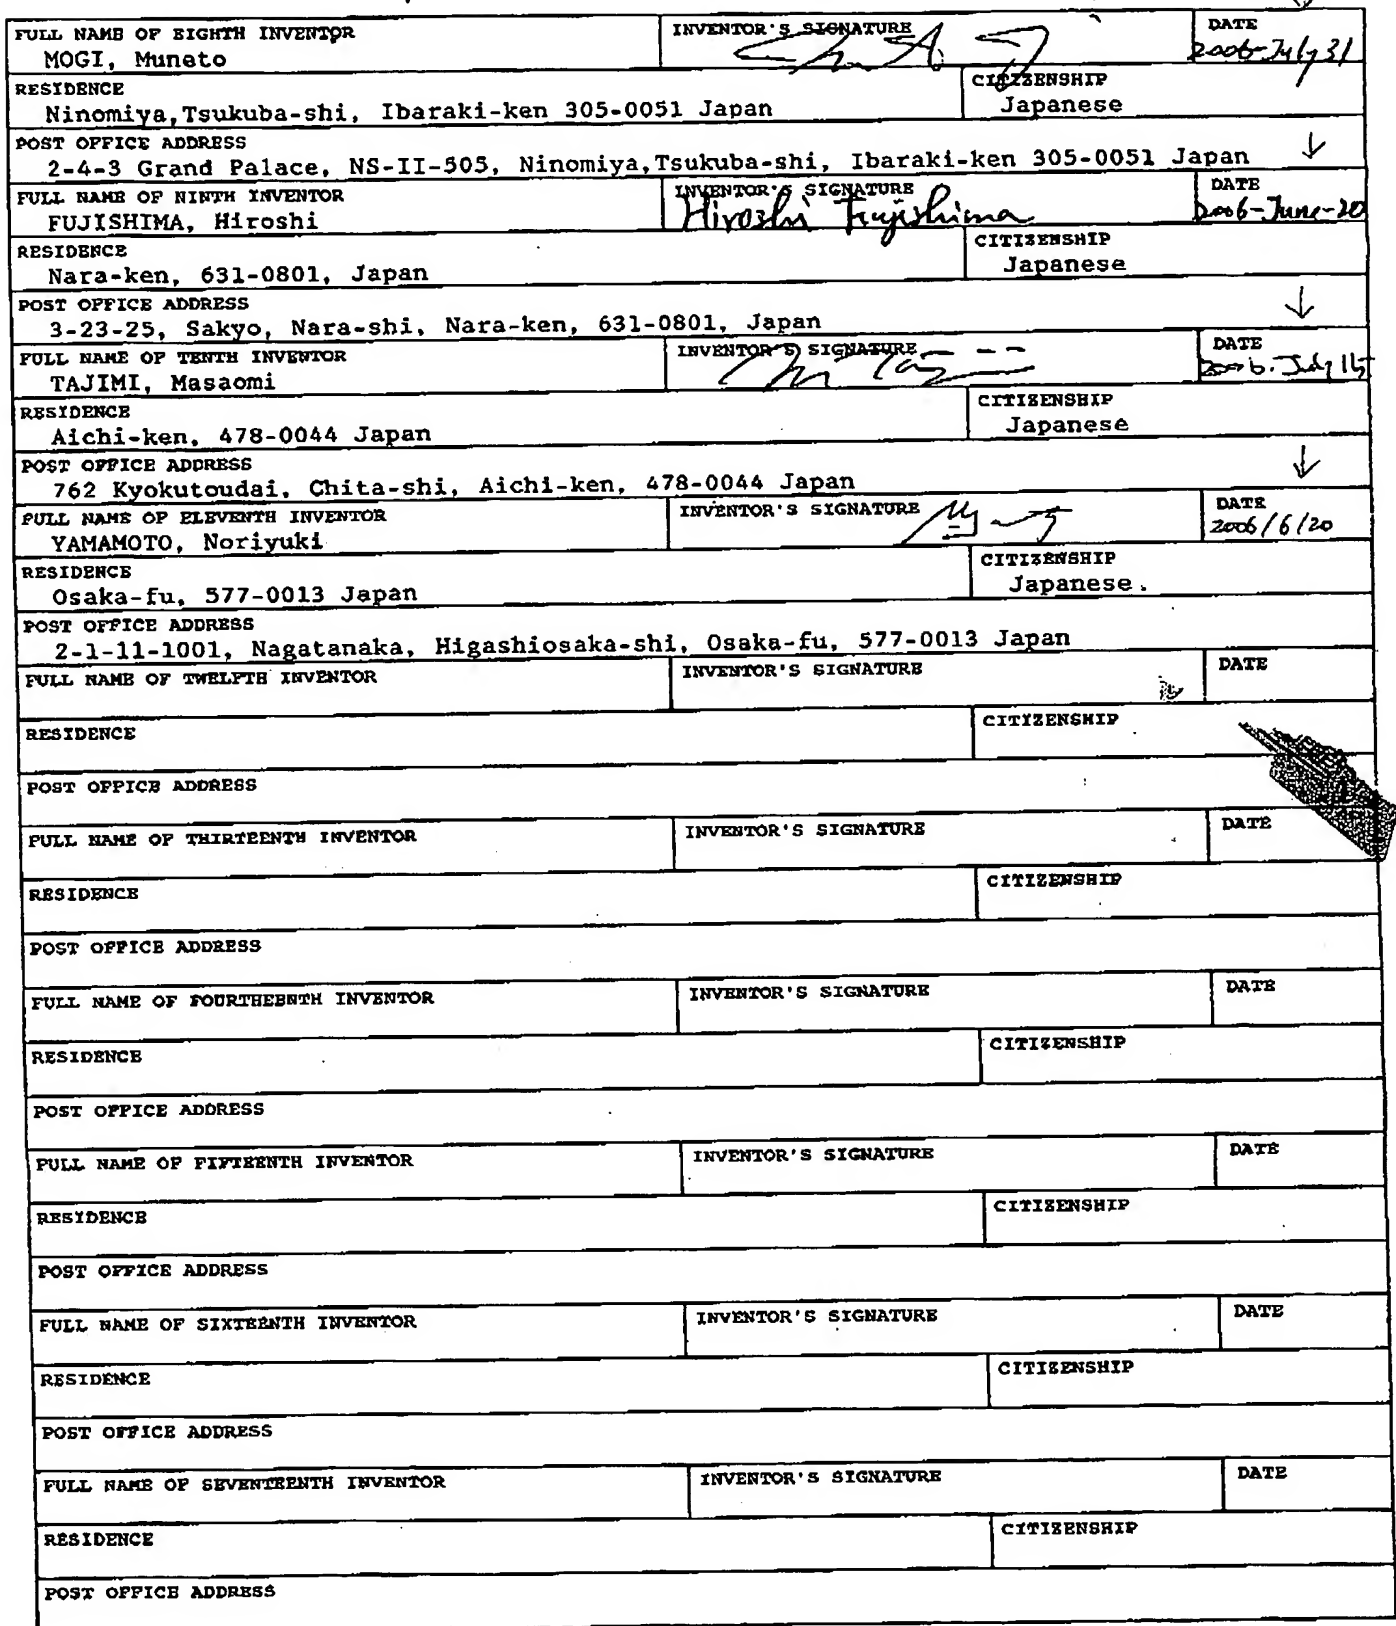 FULL NAME OF EIGHTH INVENTOR INVENTOR'S SIGNATURE DATE
MOGI, Muneto 2006-July 31
RESIDENCE CITIZENSHIP
Ninomiya,Tsukuba-shi, Ibaraki-ken 305-0051 Japan Japanese
POST OFFICE ADDRESS
2-4-3 Grand Palace, NS-II-505, Ninomiya,Tsukuba-shi, Ibaraki-ken 305-0051 Japan
FULL NAME OF NINTH INVENTOR INVENTOR'S SIGNATURE DATE
FUJISHIMA, Hiroshi Hiroshi Fujishima 2006-June-20
RESIDENCE CITIZENSHIP
Nara-ken, 631-0801, Japan Japanese
POST OFFICE ADDRESS
3-23-25, Sakyo, Nara-shi, Nara-ken, 631-0801, Japan
FULL NAME OF TENTH INVENTOR INVENTOR'S SIGNATURE DATE
TAJIMI, Masaomi 2006. July 15
RESIDENCE CITIZENSHIP
Aichi-ken, 478-0044 Japan Japanese
POST OFFICE ADDRESS
762 Kyokutoudai, Chita-shi, Aichi-ken, 478-0044 Japan
FULL NAME OF ELEVENTH INVENTOR INVENTOR'S SIGNATURE DATE
YAMAMOTO, Noriyuki 2006/6/20
RESIDENCE CITIZENSHIP
Osaka-fu, 577-0013 Japan Japanese.
POST OFFICE ADDRESS
2-1-11-1001, Nagatanaka, Higashiosaka-shi, Osaka-fu, 577-0013 Japan
FULL NAME OF TWELFTH INVENTOR INVENTOR'S SIGNATURE DATE
RESIDENCE CITIZENSHIP
POST OFFICE ADDRESS
FULL NAME OF THIRTEENTH INVENTOR INVENTOR'S SIGNATURE DATE
RESIDENCE CITIZENSHIP
POST OFFICE ADDRESS
FULL NAME OF FOURTHEENTH INVENTOR INVENTOR'S SIGNATURE DATE
RESIDENCE CITIZENSHIP
POST OFFICE ADDRESS
FULL NAME OF FIFTEENTH INVENTOR INVENTOR'S SIGNATURE DATE
RESIDENCE CITIZENSHIP
POST OFFICE ADDRESS
FULL NAME OF SIXTEENTH INVENTOR INVENTOR'S SIGNATURE DATE
RESIDENCE CITIZENSHIP
POST OFFICE ADDRESS
FULL NAME OF SEVENTEENTH INVENTOR INVENTOR'S SIGNATURE DATE
RESIDENCE CITIZENSHIP
POST OFFICE ADDRESS